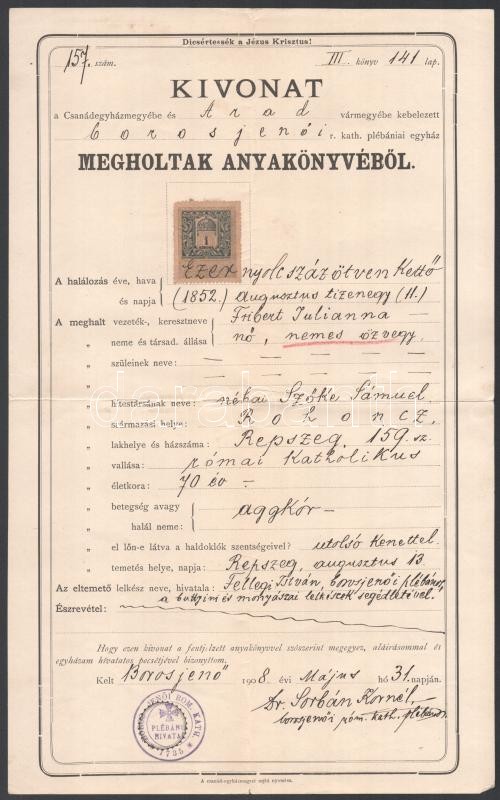 Dicsértessék a Jézus Krisztus!
157. szám. III. könyv 141 lap.
KIVONAT
a Csanádegyházmegyébe és Arad vármegyébe kebelezett
borosjenői r. kath. plébániai egyház
MEGHOLTAK ANYAKÖNYVÉBŐL.
1
A halálozás éve, hava és napja Ezer nyolcszázötven Kettő
(1852.) augusztus tizenegy (11.)
A meghalt vezeték-, keresztneve Fribert Julianna
„ neme és társad. állása nő, nemes özvegy.
„ szüleinek neve: — — — — —
„ — — — — —
„ hitestársának neve: néhai Szőke Sámuel
„ származási helye: Rohoncz,
„ lakhelye és házszáma: Repszeg, 159. sz.
„ vallása: római Katholikus
„ életkora: 70 év –
„ betegség avagy halál neme: aggkór –
„ el lőn-e látva a haldoklók szentségeivel? utolsó Kenettel.
„ temetés helye, napja: Repszeg, augusztus 13.
Az eltemető lelkész neve, hivatala: Fellegi István, borosjenői plébános,
a buttyini és monyászai lelkészek segédletével.
Észrevétel:
Hogy ezen kivonat a fentjelzett anyakönyvvel szószerint megegyez, aláirásommal és
egyházam hivatatos pecsétjével bizonyitom.
Kelt Borosjenő 1908. évi Május hó 31. napján.
Dr. Sorbán Kornél,
borosjenői róm. kath. plébános.
JENŐI ROM. KATH.
PLÉBÁNIA
HIVATAL
A csanád-egyházmegyei sajtó nyomása.
darabanth